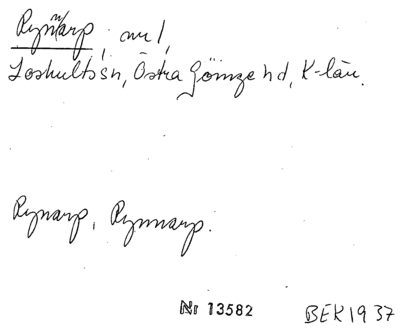 Rynarp, nr 1,
Loshults sn, Östra Göinge hd, K-län.
Rynarp, Rynnarp.
Nr 13582 BEK 1937